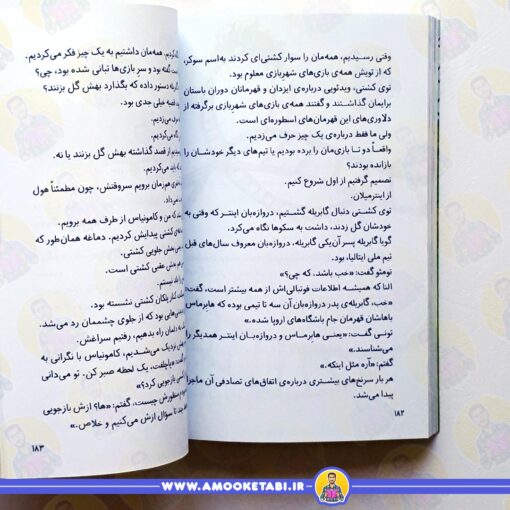 وقتی رسیدیم، همه‌مان را سوار کشتی‌ای کردند به‌اسم سوکر،
که از تویش همه‌ی بازی‌های شهربازی معلوم بود.
توی کشتی، ویدئویی درباره‌ی ایزدان و قهرمانان دوران باستان
برایمان گذاشتند و گفتند همه‌ی بازی‌های شهربازی برگرفته از
دلاوری‌های این قهرمان‌های اسطوره‌ای است.
ولی ما فقط درباره‌ی یک چیز حرف می‌زدیم.
واقعاً دو تا بازی‌مان را برده بودیم یا تیم‌های دیگر خودشان را
بازانده بودند؟
تصمیم گرفتیم از اول شروع کنیم.
از اینترمیلان.
توی کشتی دنبال گابریله گشتیم، دروازه‌بان اینتر که وقتی به
خودشان گل زدند، داشت به سکوها نگاه می‌کرد.
گویا گابریله پسر آن‌یکی گابریله، دروازه‌بان معروف سال‌های قبل
تیم ملی ایتالیا، بود.
تومئو گفت: «خب باشد. که چی؟»
النا که همیشه اطلاعات فوتبالی‌اش از همه بیشتر است، گفت:
«خب، گابریله‌ی پدر دروازه‌بان آن سه تا تیمی بوده که هایرماس
باهاشان قهرمان جام باشگاه‌های اروپا شده.»
تونی گفت: «یعنی هایرماس و دروازه‌بان اینتر همدیگر را
می‌شناسند.»
گفتم: «آره مثل اینکه.»
هر بار سرنخ‌های بیشتری درباره‌ی اتفاق‌های تصادفی آن ماجرا
پیدا می‌شد.
۱۸۲
همه‌مان داشتیم به یک چیز فکر می‌کردیم.
گفته بود و سرِ بازی‌ها تبانی شده بود، چی؟
دستور داده که بگذارد بهش گل بزنند؟
قضیه خیلی جدی بود.
حرف می‌زدیم.
می‌کردیم.
از قصد گذاشته بهش گل بزنند یا نه.
می‌کردیم.
هم‌زمان برویم سروقتش، چون مطمئناً هول
که من و کامونیاس از طرف همه برویم.
کشتی پیدایش کردیم. دماغه همان‌طور که
بخش جلویی کشتی.
بخش عقبی کشتی است.
نیستم.
کنار پلکان کشتی نشسته بود.
که از جلوی چشممان رد می‌شد.
راه بدهیم، رفتیم سراغش.
نزدیک می‌شدیم، کامونیاس با نگرانی به
گفت: «پاچلفت، یک لحظه صبر کن. تو می‌دانی
بازجویی کرد؟»
منظورش چیست، گفتم: «ها؟ ازش بازجویی
چند تا سؤال ازش می‌کنیم و خلاص.»
۱۸۳
WWW.AMOOKETABI.IR